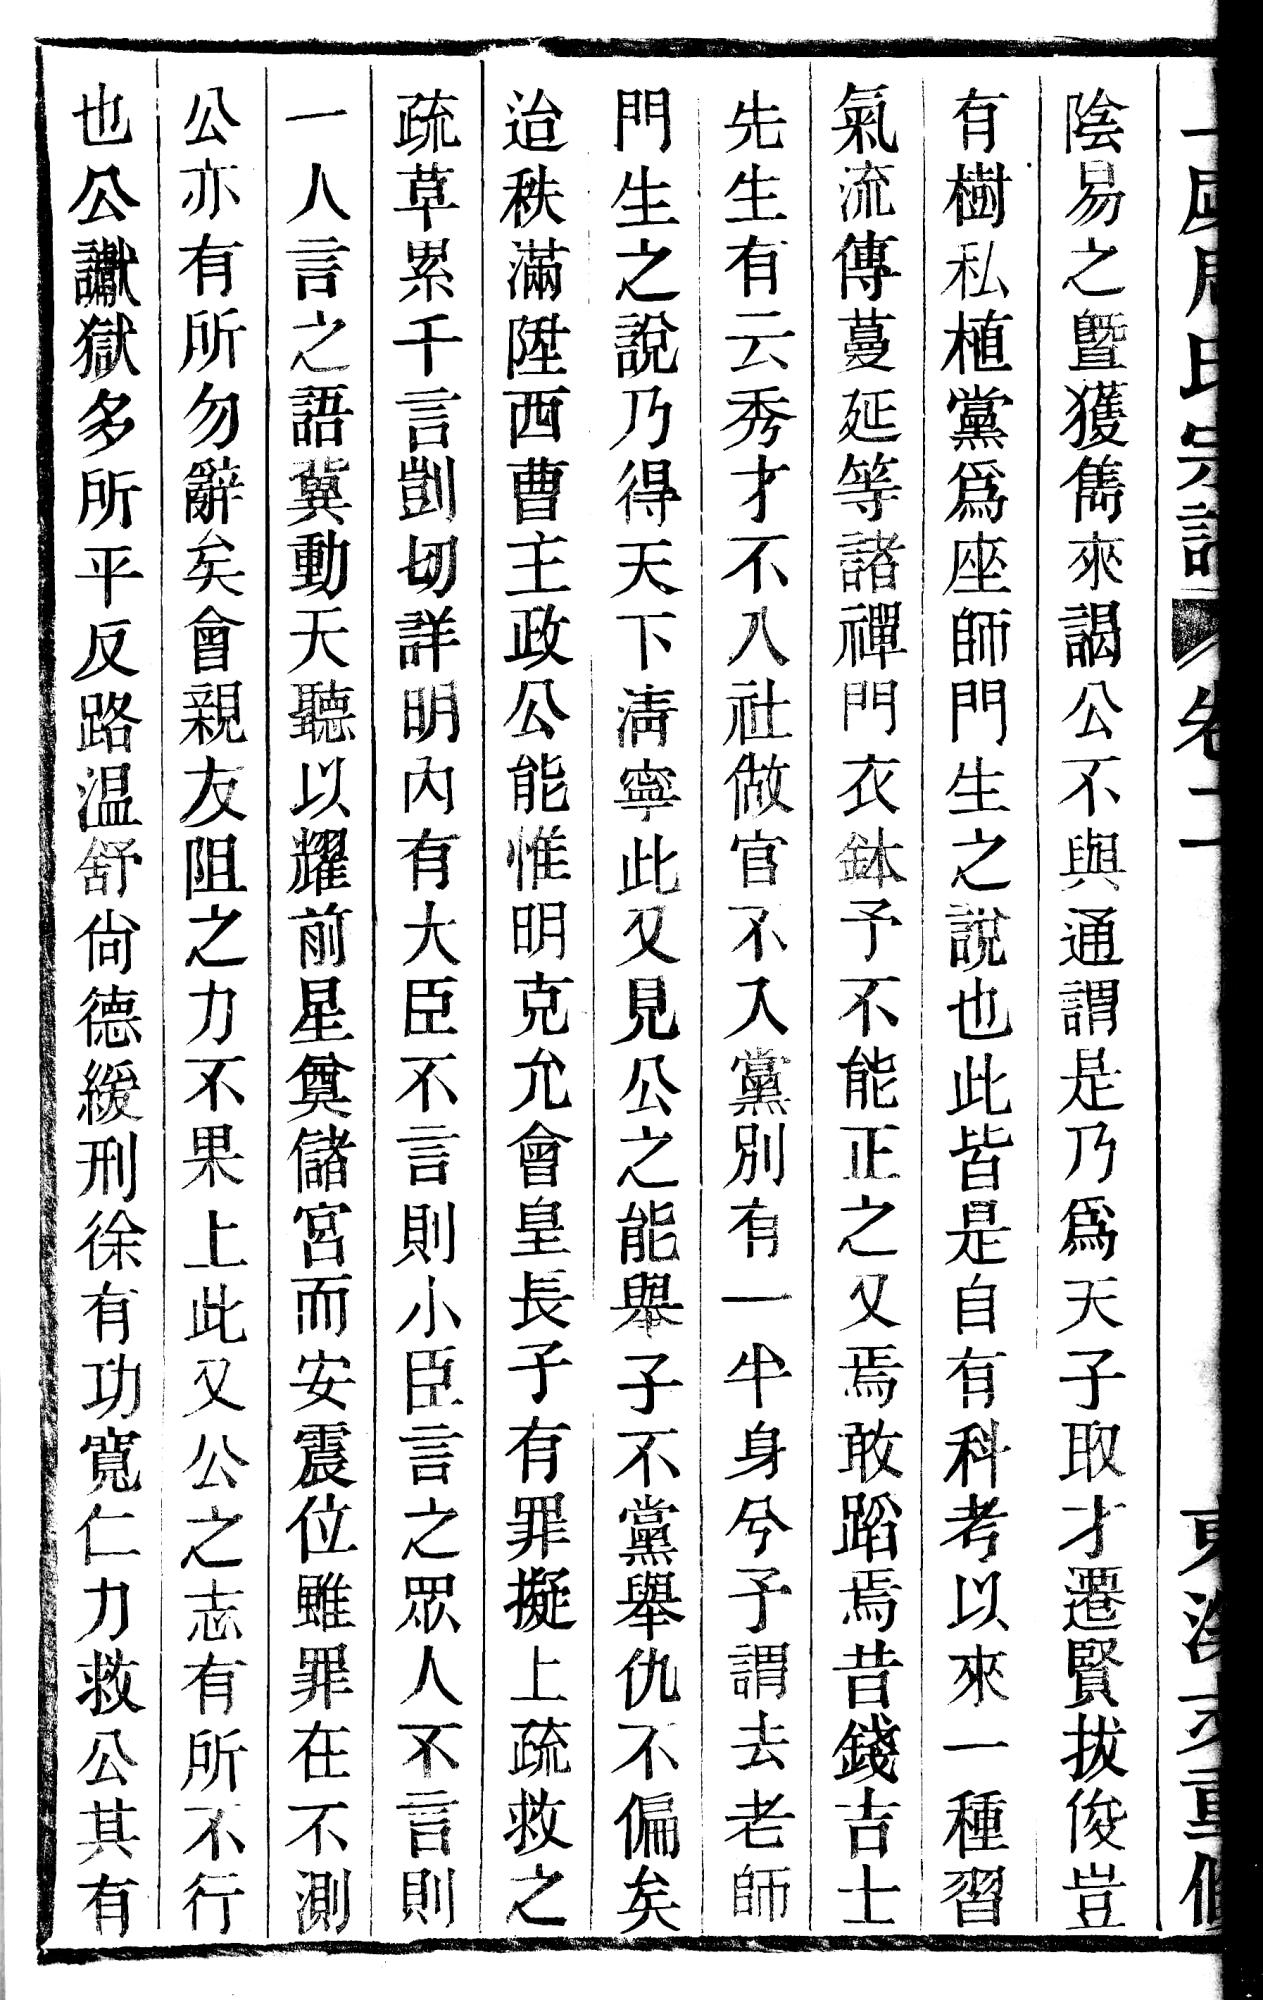 周氏宗譜 卷二
陰易之曁獲雋來謁公不與通謂是乃爲天子取才遷賢拔俊豈
有樹私植黨爲座師門生之說也此皆是自有科考以來一種習
氣流傳蔓延等諸禪門衣鉢予不能正之又焉敢蹈焉昔錢吉士
先生有云秀才不入社做官不入黨別有一半身兮予謂去老師
門生之說乃得天下淸寧此又見公之能舉子不黨舉仇不偏矣
治秩滿陞西曹主政公能惟明克允會皇長子有罪擬上疏救之
疏草累千言剴切詳明內有大臣不言則小臣言之眾人不言則
一人言之語冀動天聽以耀前星奠儲宮而安震位雖罪在不測
公亦有所勿辭矣會親友阻之力不果上此又公之志有所不行
也公讞獄多所平反路温舒尙德緩刑徐有功寬仁力救公其有